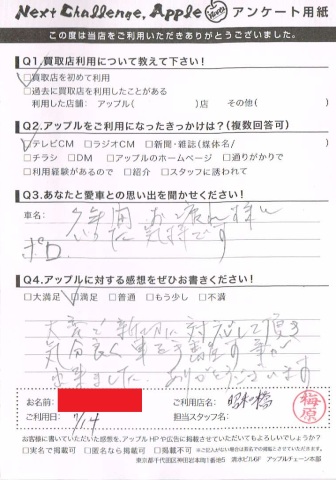 Next Challenge, Apple アンケート用紙
この度は当店をご利用いただきありがとうございました。
Q1.買取店利用について教えて下さい!
□買取店を初めて利用
□過去に買取店を利用したことがある
利用した店舗: アップル( )店 その他( )
Q2.アップルをご利用になったきっかけは?(複数回答可)
□テレビCM □ラジオCM □新聞・雑誌(媒体名/ )
□チラシ □DM □アップルのホームページ □通りがかりで
□利用経験があるので □紹介 □スタッフに誘われて
Q3.あなたと愛車との思い出を聞かせください!
車名:
ポロ
久年間お疲れ様と
いった気持です
Q4.アップルに対する感想をぜひお書きください!
□大満足 □満足 □普通 □もう少し □不満
大変で新に対応して頂き
気分良く車を手離す事が
出来ました ありがとうございます
お名前:
ご利用店名: 昭和橋
ご利用日: 7/14
担当スタッフ名:
梅原
お客様に書いていただいた感想を、アップルHPや広告に掲載させていただいてもよろしいでしょうか?
□実名で掲載可 □匿名なら掲載可 □掲載不可 ※ご記入がない場合は匿名での掲載とさせていただきます。
東京都千代田区神田岩本町1番地5 清水ビル6F アップルチェーン本部